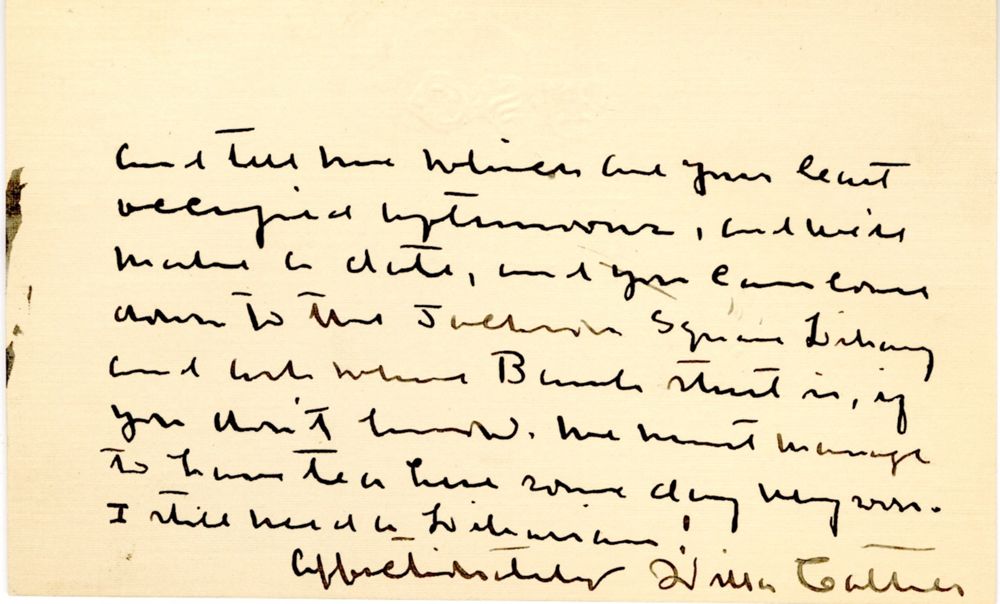 and tell me which are your least
occupied afternoons, and we'll
make a date, and you can come
down to the Jackson Square Library
and ask where Bank street is, if
you don't know. We must manage
to have tea here some day very soon.
I still need a Librarian!
Affectionately Willa Cather